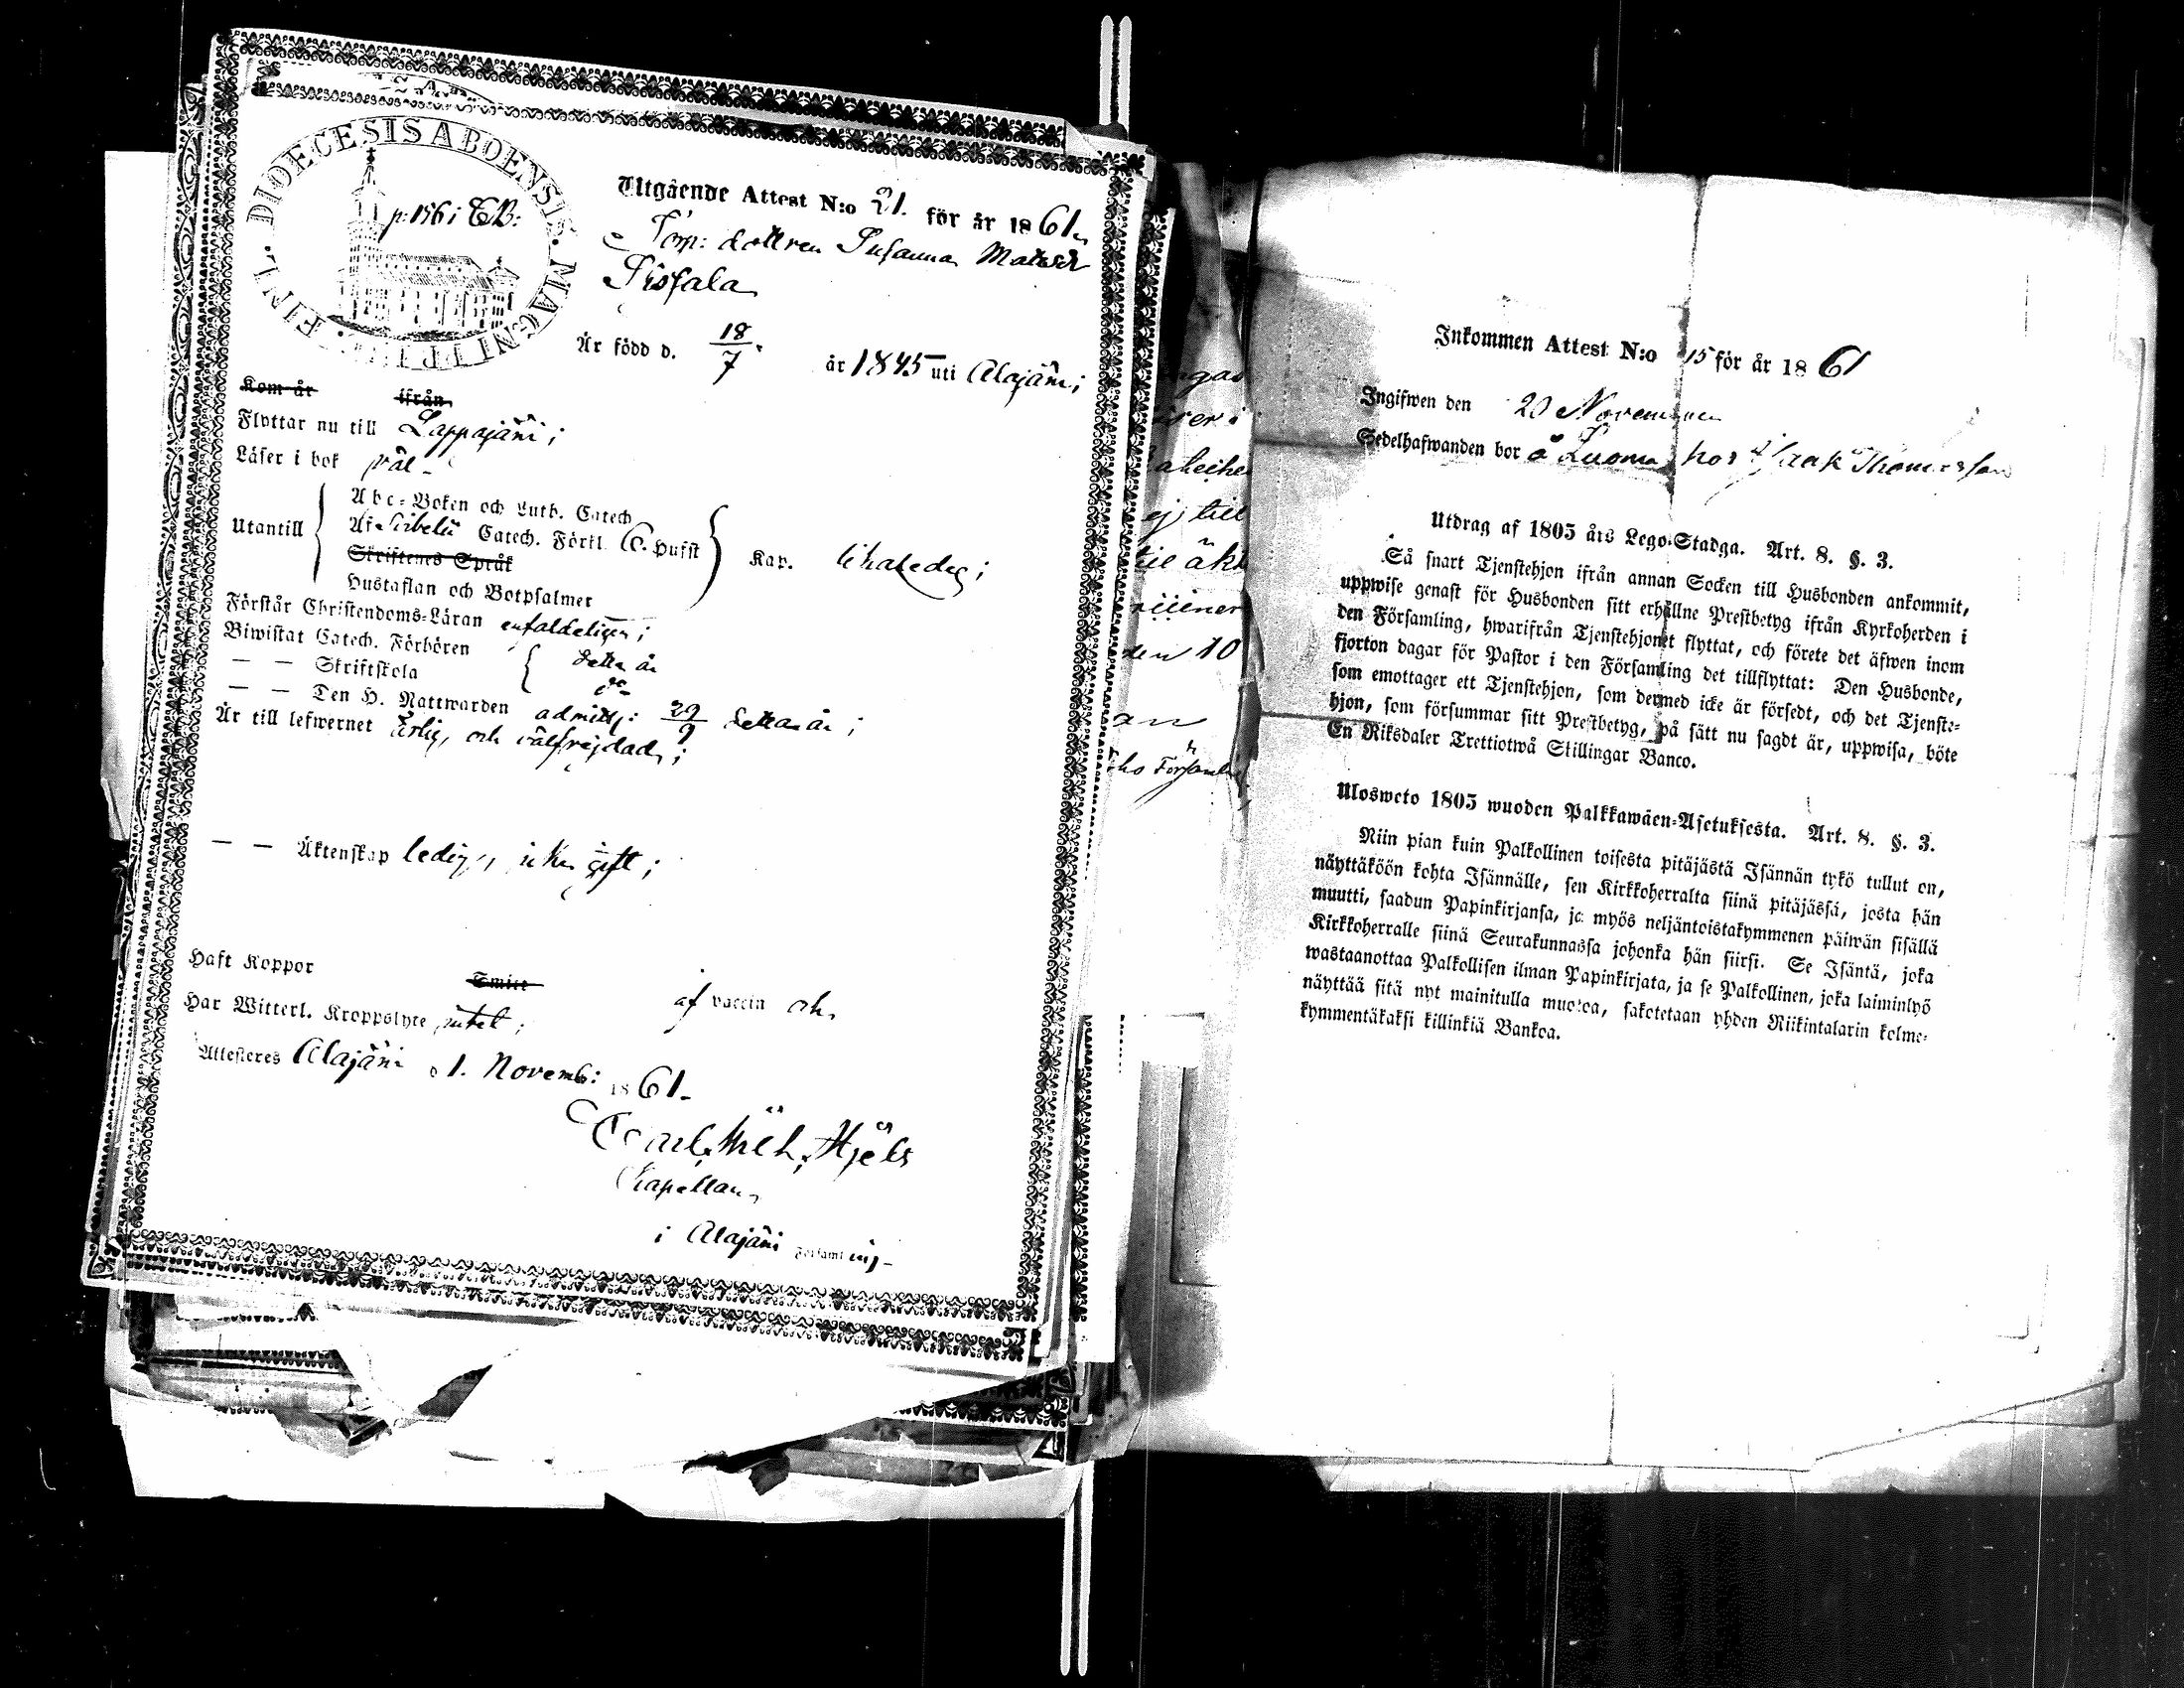 DIOECESIS ABOENSIS. MAGNI PR. FINL.
p: 156 i CB:
Utgående Attest N:o 21. för år 1861.
Torp: dottren Susanna Matsdr
Pisfala
Är född d. 18/7. år 1845 uti Alajärvi;
Kom år ifrån
Flyttar nu till Lappajärvi;
Läser i bok väl
Utantill
Abc-Boken och Luth. Catech
Af Catech. Förkl. Hufst Kap.
Skriftenes Språk
Hustaflan och Botpsalmer
Förstår Christendoms-Läran enfaldeligen;
Biwistat Catech. Förhören detta år
— — Skriftskola do
— — Den H. Nattwarden admitt: 29/9 detta år;
Är till lefwernet ärlig, och välfrejdad;
— — Äktenskap ledig, icke gift;
Haft Koppor af vaccin och
Har Witterl. Kroppslyte intet;
Attesteras Alajärvi d 1. Novemb: 1861.
Carl Wilh. Hjelt
Kapellan
i Alajärvi Församling
ej till
den 10
Inkommen Attest N:o 15 för år 1861
Ingifwen den 20 November
Sedelhafwanden bor å Luoma hos Isaak Thomasson
Utdrag af 1805 års Lego-Stadga. Art. 8. §. 3.
Så snart Tjenstehjon ifrån annan Socken till Husbonden ankommit,
uppwise genast för Husbonden sitt erhållne Prestbetyg ifrån Kyrkoherden i
den Församling, hwarifrån Tjenstehjonet flyttat, och förete det äfwen inom
fjorton dagar för Pastor i den Församling det tillflyttat: Den Husbonde,
som emottager ett Tjenstehjon, som dermed icke är försedt, och det Tjenste-
hjon, som försummar sitt Prestbetyg, på sätt nu sagdt är, uppwisa, böte
En Riksdaler Trettiotwå Skillingar Banco.
Ulosweto 1805 wuoden Palkkawäen-Asetuksesta. Art. 8. §. 3.
Niin pian kuin Palkollinen toisesta pitäjästä Isännän tykö tullut on,
näyttäköön kohta Isännälle, sen Kirkkoherralta siinä pitäjässä, josta hän
muutti, saadun Papinkirjansa, ja myös neljäntoistakymmenen päiwän sisällä
Kirkkoherralle siinä Seurakunnassa johonka hän siirsi. Se Isäntä, joka
wastaanottaa Palkollisen ilman Papinkirjata, ja se Palkollinen, joka laiminlyö
näyttää sitä nyt mainitulla muotoa, sakotetaan yhden Riikintalarin kolme-
kymmentäkaksi killinkiä Bankoa.